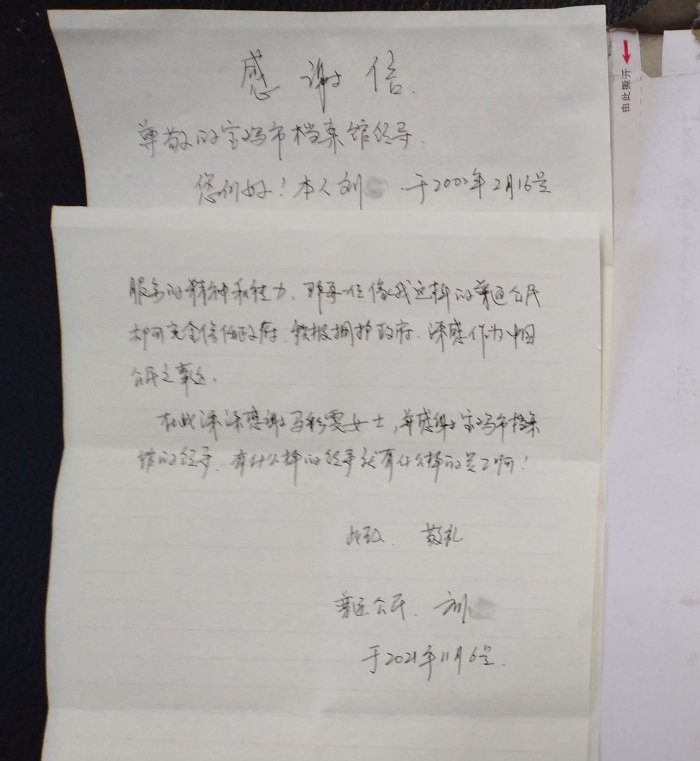 感谢信.
尊敬的宝鸡市档案馆领导.
您们好!本人刘 于2000年2月16号
服务的精神和能力.那每一位像我这样的普通公民
都可完全信任政府.积极拥护政府.深感作为中国
公民之幸运.
在此深深感谢马彩雯女士,并感谢宝鸡市档案
馆的领导.有什么样的领导就有什么样的员工啊!
此致. 敬礼
普通公民. 刘
于2021年11月6号.
由此撕开